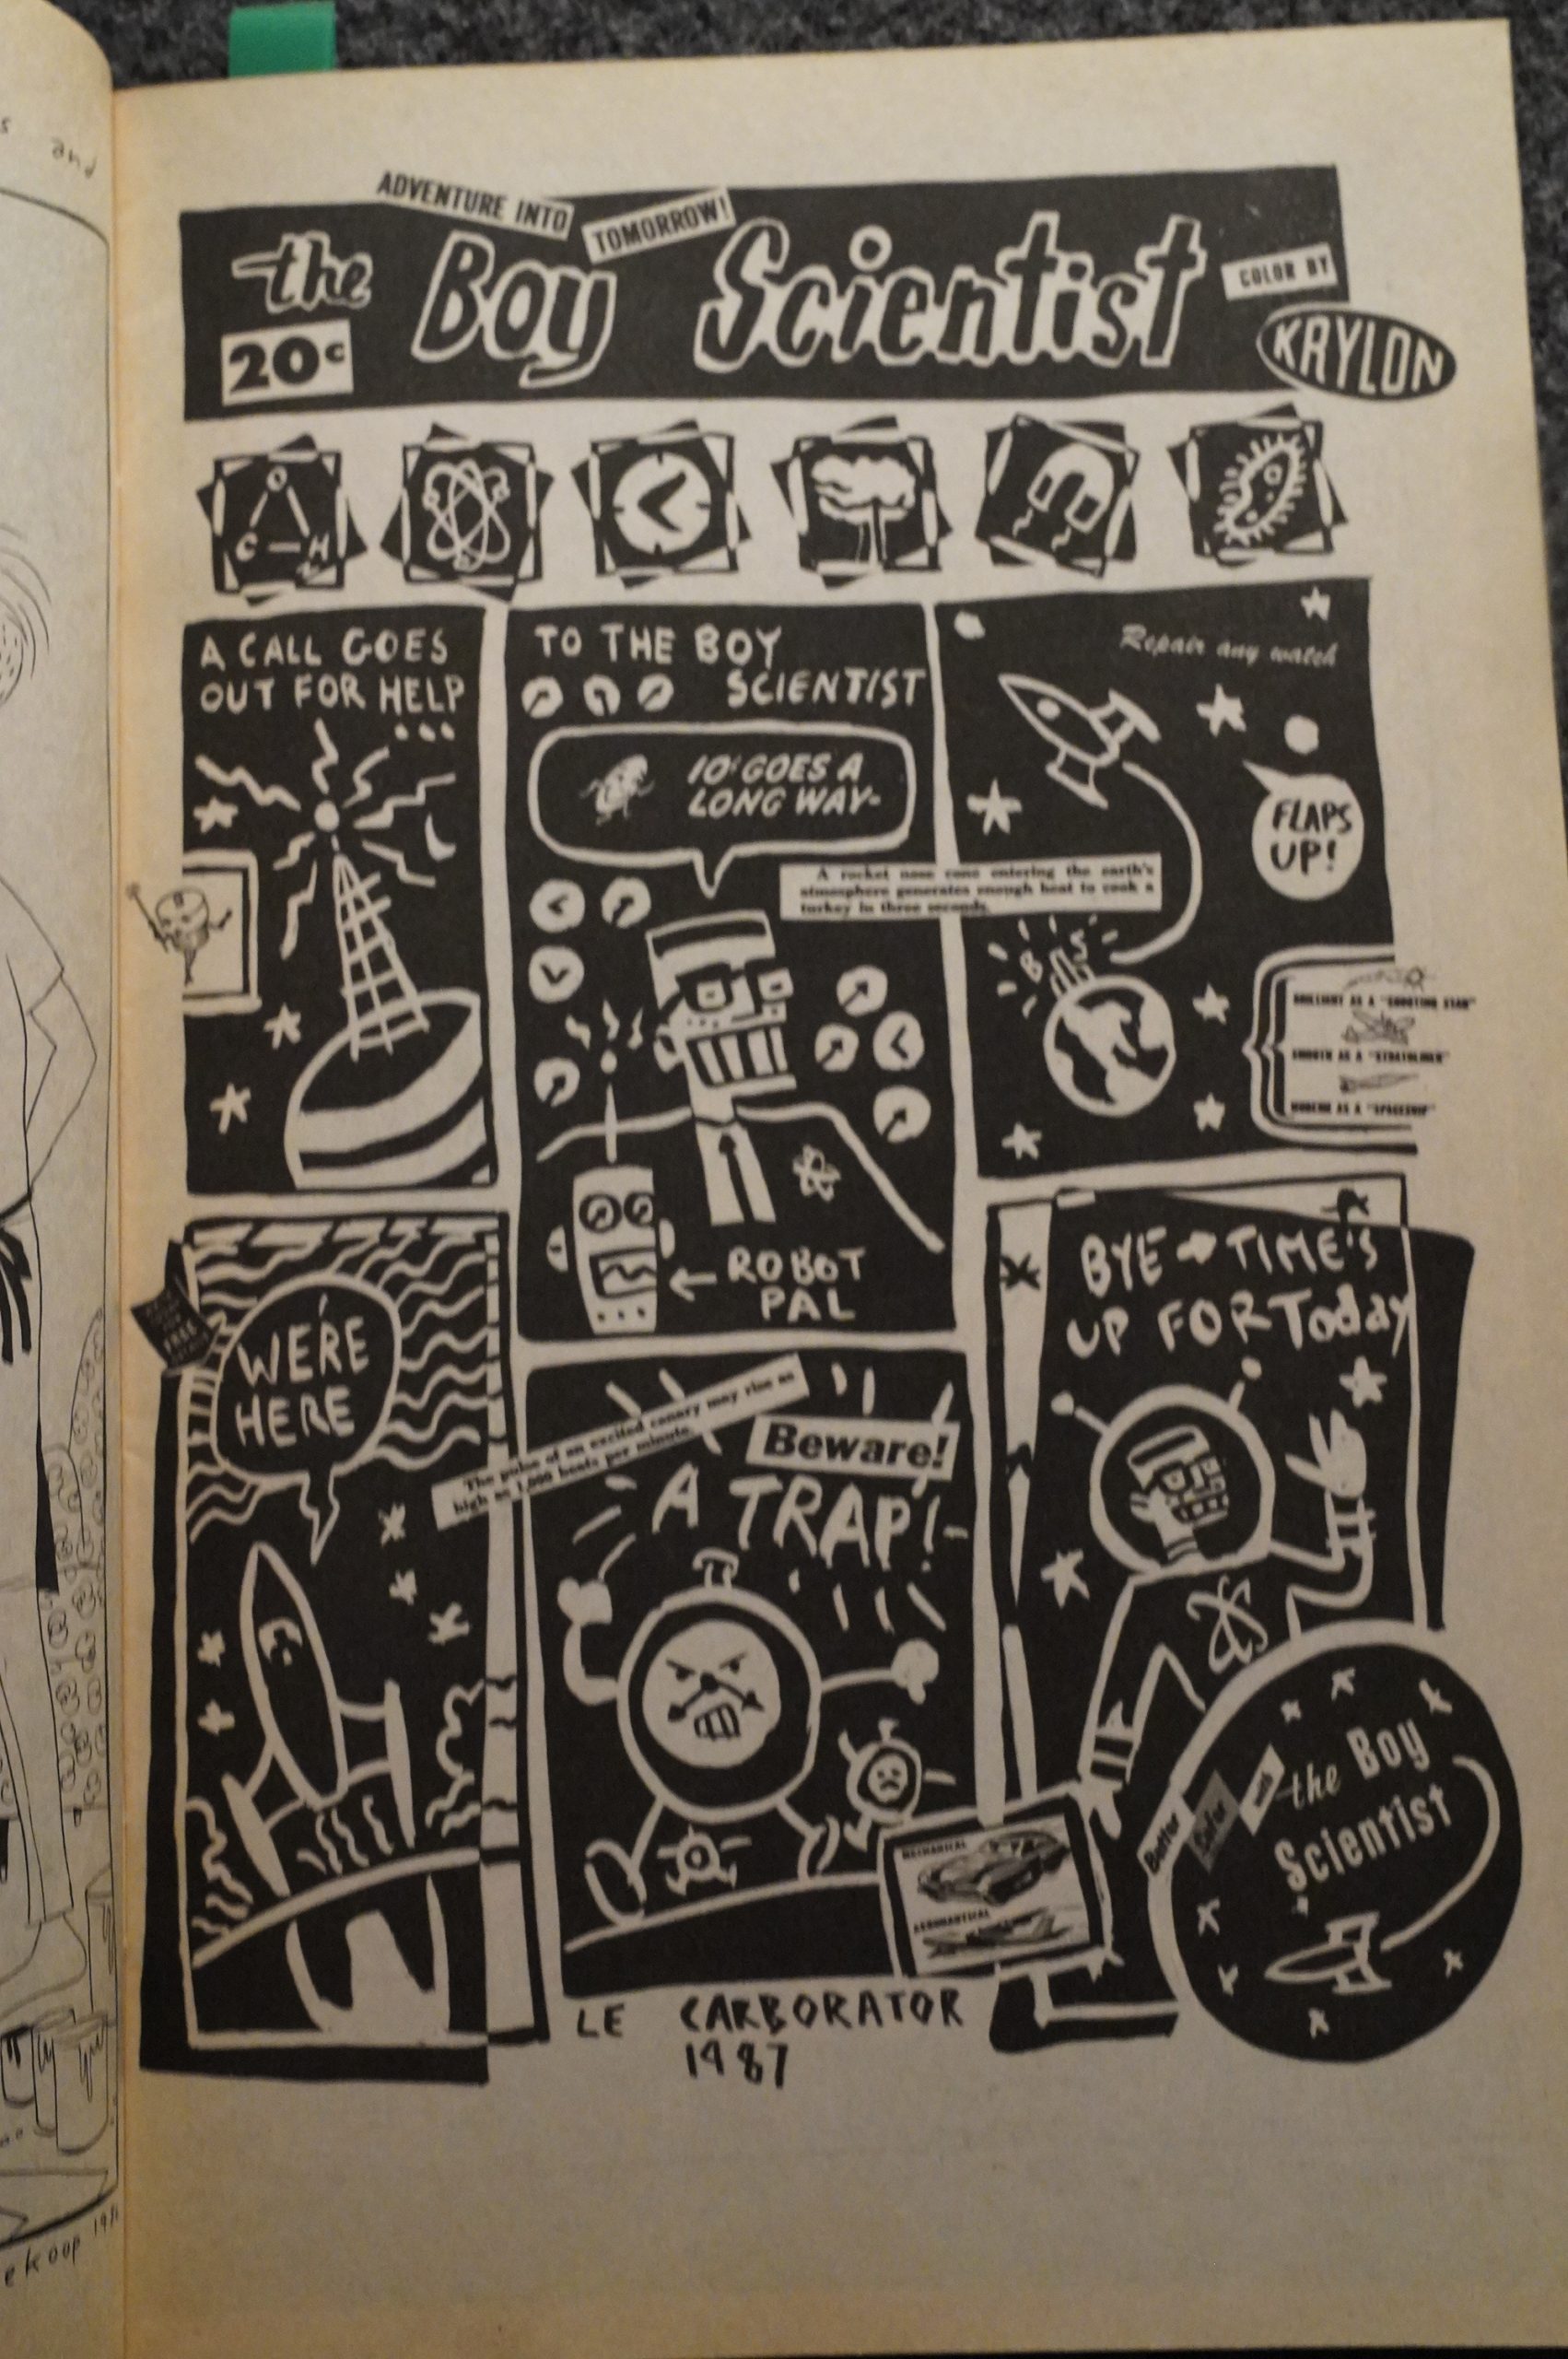 ADVENTURE INTO
TOMORROW!
the Boy Scientist
20¢
COLOR BY
KRYLON
O
C H
A CALL GOES
OUT FOR HELP
...
TO THE BOY
SCIENTIST
10¢ GOES A
LONG WAY-
ROBOT
PAL
Repair any watch
FLAPS
UP!
A rocket nose cone entering the earth's
atmosphere generates enough heat to cook a
turkey in three seconds.
BRILLIANT AS A "SHOOTING STAR"
SMOOTH AS A "STRATOLINER"
MODERN AS A "SPACESHIP"
FREE
WE'RE
HERE
The pulse of an excited canary may rise as
high as 1,000 beats per minute.
Beware!
A TRAP!
MECHANICAL
AERONAUTICAL
BYE → TIME'S
UP FOR Today
Better
Color
the Boy
Scientist
LE CARBORATOR
1987
and
ekoop 19